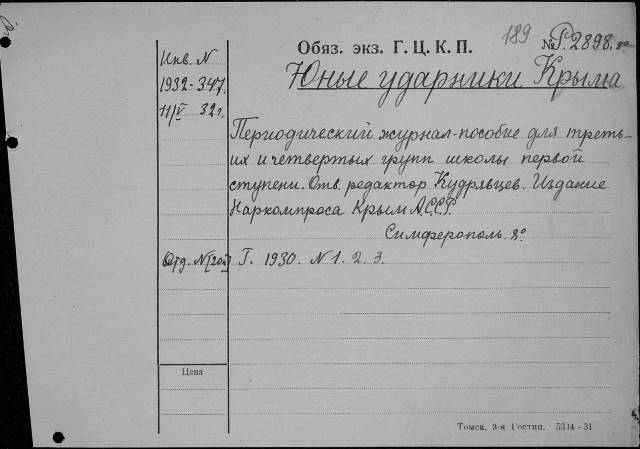 189
Обяз. экз. Г. Ц. К. П. № Р. 2898. 8°
Инв. N
1932-347.
11/V 32 г.
Юные ударники Крыма
Периодический журнал-пособие для треть-
их и четвертых групп школы первой
ступени. Отв. редактор Кудрявцев. Издание
Наркомпроса Крым А.С.С.Р.
Симферополь. 8°
Отд. N Г. 1930. N 1. 2. 3.
Цена
Томск. 3-я Гостип. 5314-31